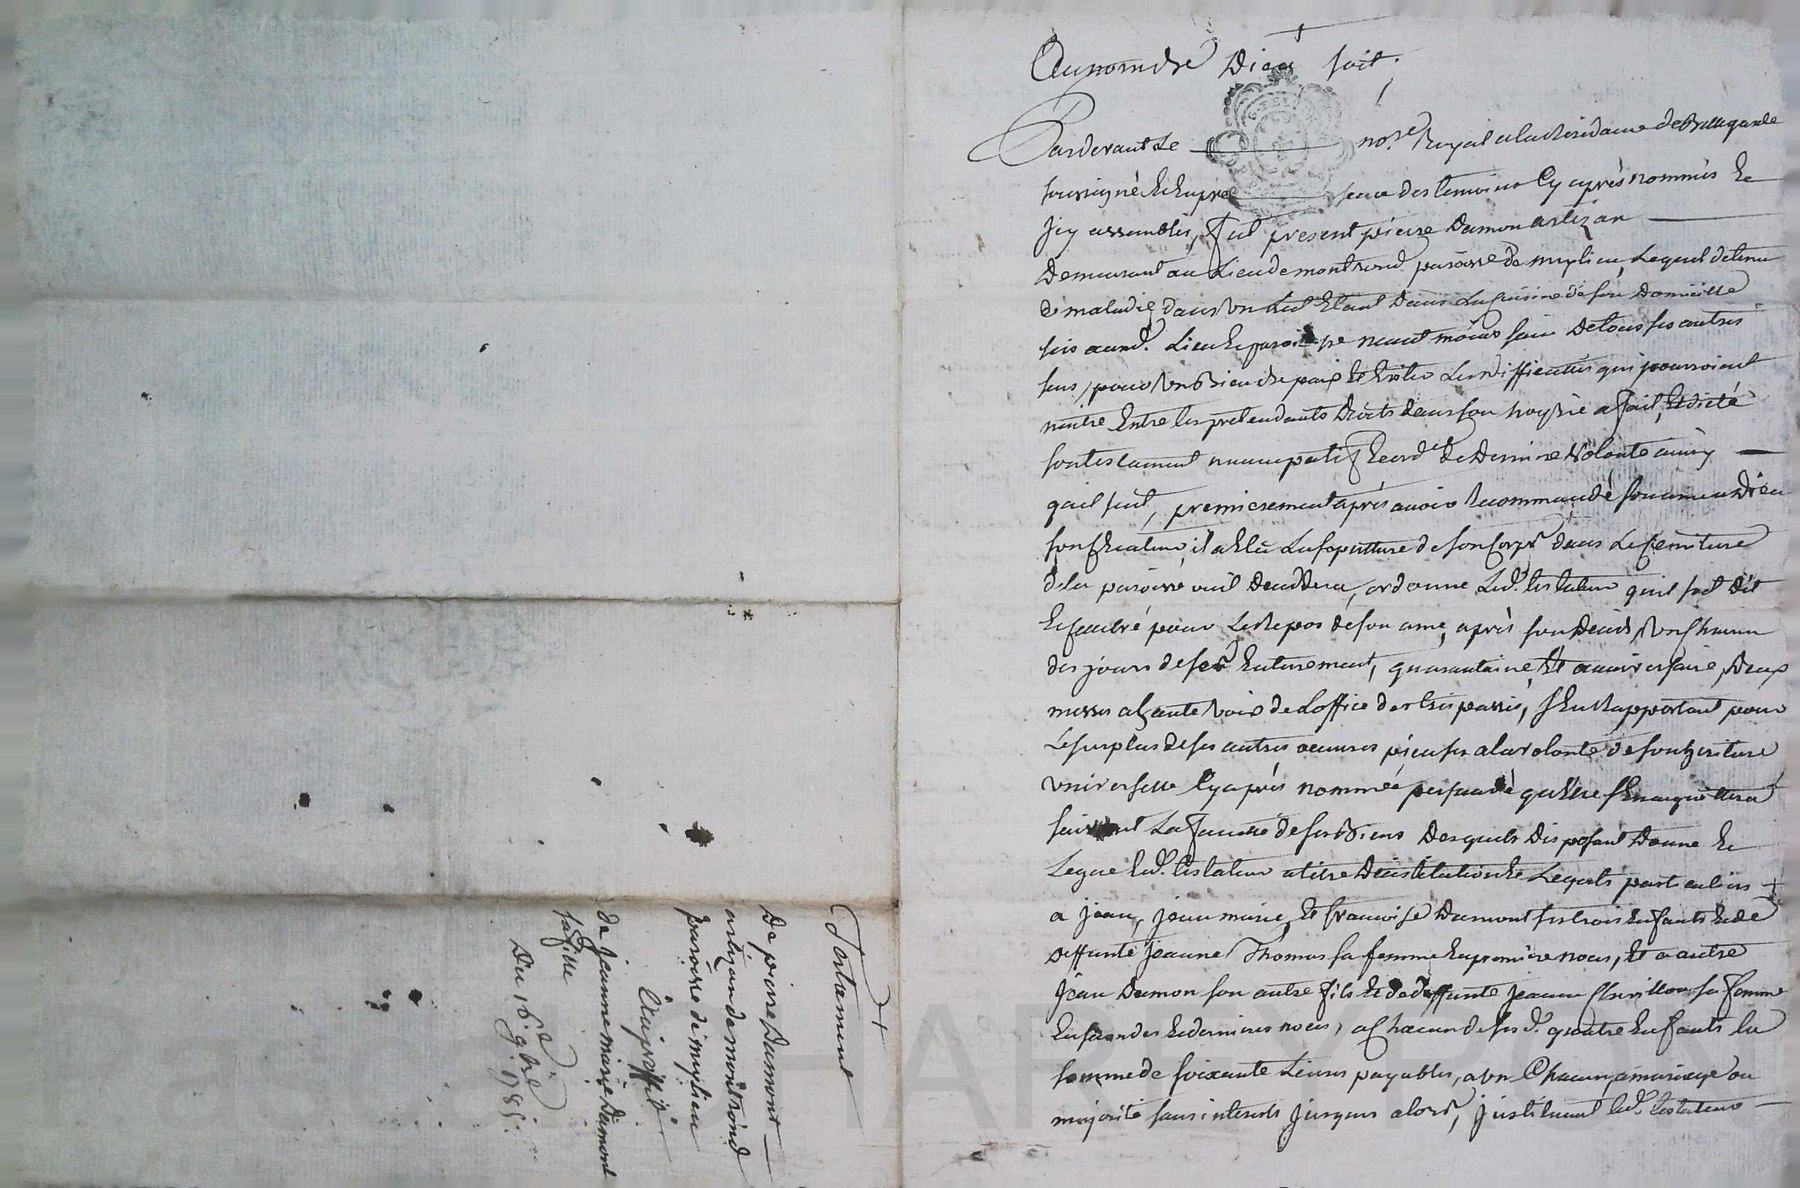 Testament
De pierre Dumont
artizan de montrond
paroisse de myslieu
Au proffit
de Jeanne marie Dumont
sa fille
Du 16e 9bre 1785.
Au nom de Dieu soit.
Pardevant Le no.re Royal a la Résidance de Bellegarde
soussigné Et En presence des temoins Cy après nommés Et
Jcy assemblés, fut present pierre Dumon artizan
Demeurant au Lieu de montrond paroisse de myslieu, Lequel detenu
de maladie dans un Lict Etant Dans La cuisine de son Domicille
sis aud. Lieu Et paroisse neant moins sain De tous ses autres
sens, pour un Bien de paix Et Eviter Les difficultés qui pourroient
naitre Entre les pretendants Droits dans son hoyrie a fait, Et dicté
son testament nuncupatif Et ord. de Derniere Volonté ainsy
quil suit, premierement après avoir Recommandé son ame a Dieu
son Createur, il a Elû La sepulture de son Corps dans Le Cemitiere
de la paroisse ou il Deceddera, ordonne Led. testateur quil soit Dit
Et Celebré pour Le Repos de son ame, après son Décès, un Chacun
des jours de ses Enterement, quarantaine, Et anniversaire, Deux
messes a haute voix de L'office des trépassés, S'En Rapportant pour
Le surplus de ses autres oeuvres pieuses a la volonté de son heritiere
universelle Cy après nommée persuadé qu'Elle s'En acquittera
suivant La faculté de ses Biens Desquels Disposant Donne Et
Legue Led. testateur a titre D'institution Et Legats particuliers
a jean, jean marie, Et françoise Dumont ses trois Enfants Et de
deffunte Jeanne Thomas sa femme En premiere noces, Et a autre
Jean Dumon son autre fils Et de deffunte jeanne sa femme
En secondes Et dernieres noces, a Chacun de ses d. quatre Enfants la
somme de soixante Livres payables, a un Chacun a mariage ou
majorité sans interets jusques alors, jnstituant Led. testateur